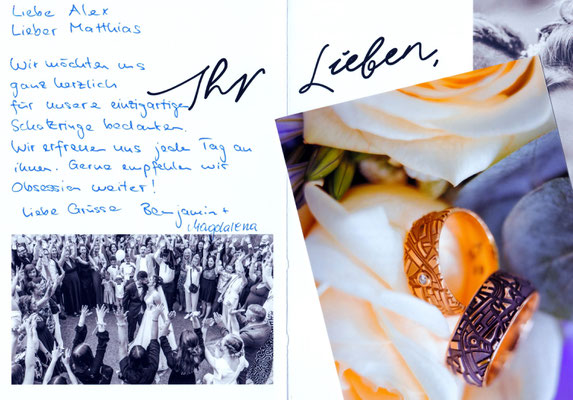 Liebe Alex
Lieber Matthias
Wir möchten uns
ganz herzlich
für unsere einzigartigen
Schatzringe bedanken.
Wir erfreuen uns jede Tag an
ihnen. Gerne empfehlen wir
Obsession weiter!
Liebe Grüsse Benjamin +
Magdalena
Ihr Lieben,